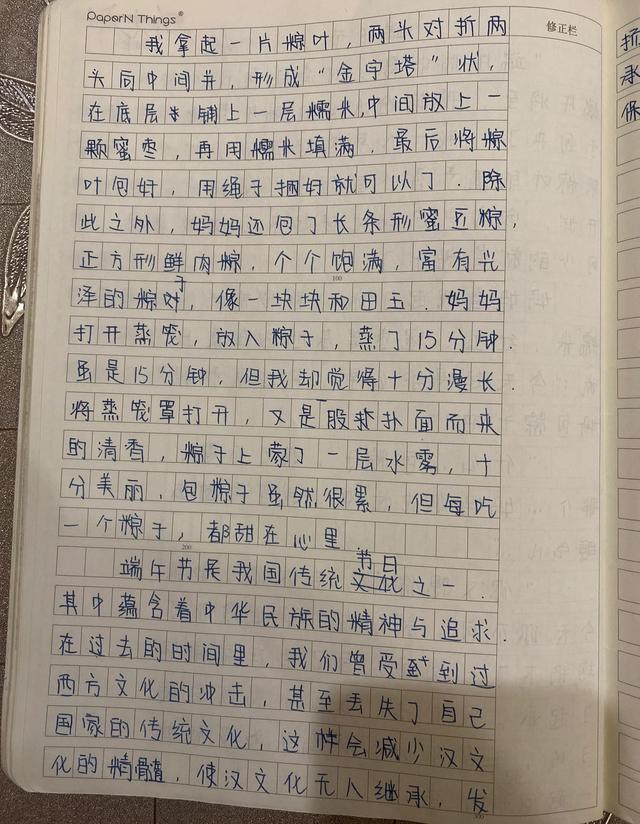 PaperN Things®
修正栏
我拿起一片粽叶，两头对折两
头向中间并，形成“金字塔”状，
在底层铺上一层糯米，中间放上一
颗蜜枣，再用糯米填满，最后将粽
叶包好，用绳子捆好就可以了．除
此之外，妈妈还包了长条形蜜豆粽，
正方形鲜肉粽，个个饱满，富有光
100
泽的粽子，像一块块和田玉．妈妈
打开蒸笼，放入粽子，蒸了15分钟．
虽是15分钟，但我却觉得十分漫长．
将蒸笼罩打开，又是一股扑面而来
的清香，粽子上蒙了一层水雾，十
分美丽．包粽子虽然很累，但每吃
一个粽子，都甜在心里
200
端午节是我国传统节日之一．
其中蕴含着中华民族的精神与追求．
在过去的时间里，我们曾受到过
西方文化的冲击，甚至丢失了自己
国家的传统文化，这样会减少汉文
化的精髓，使汉文化无人继承，发
300